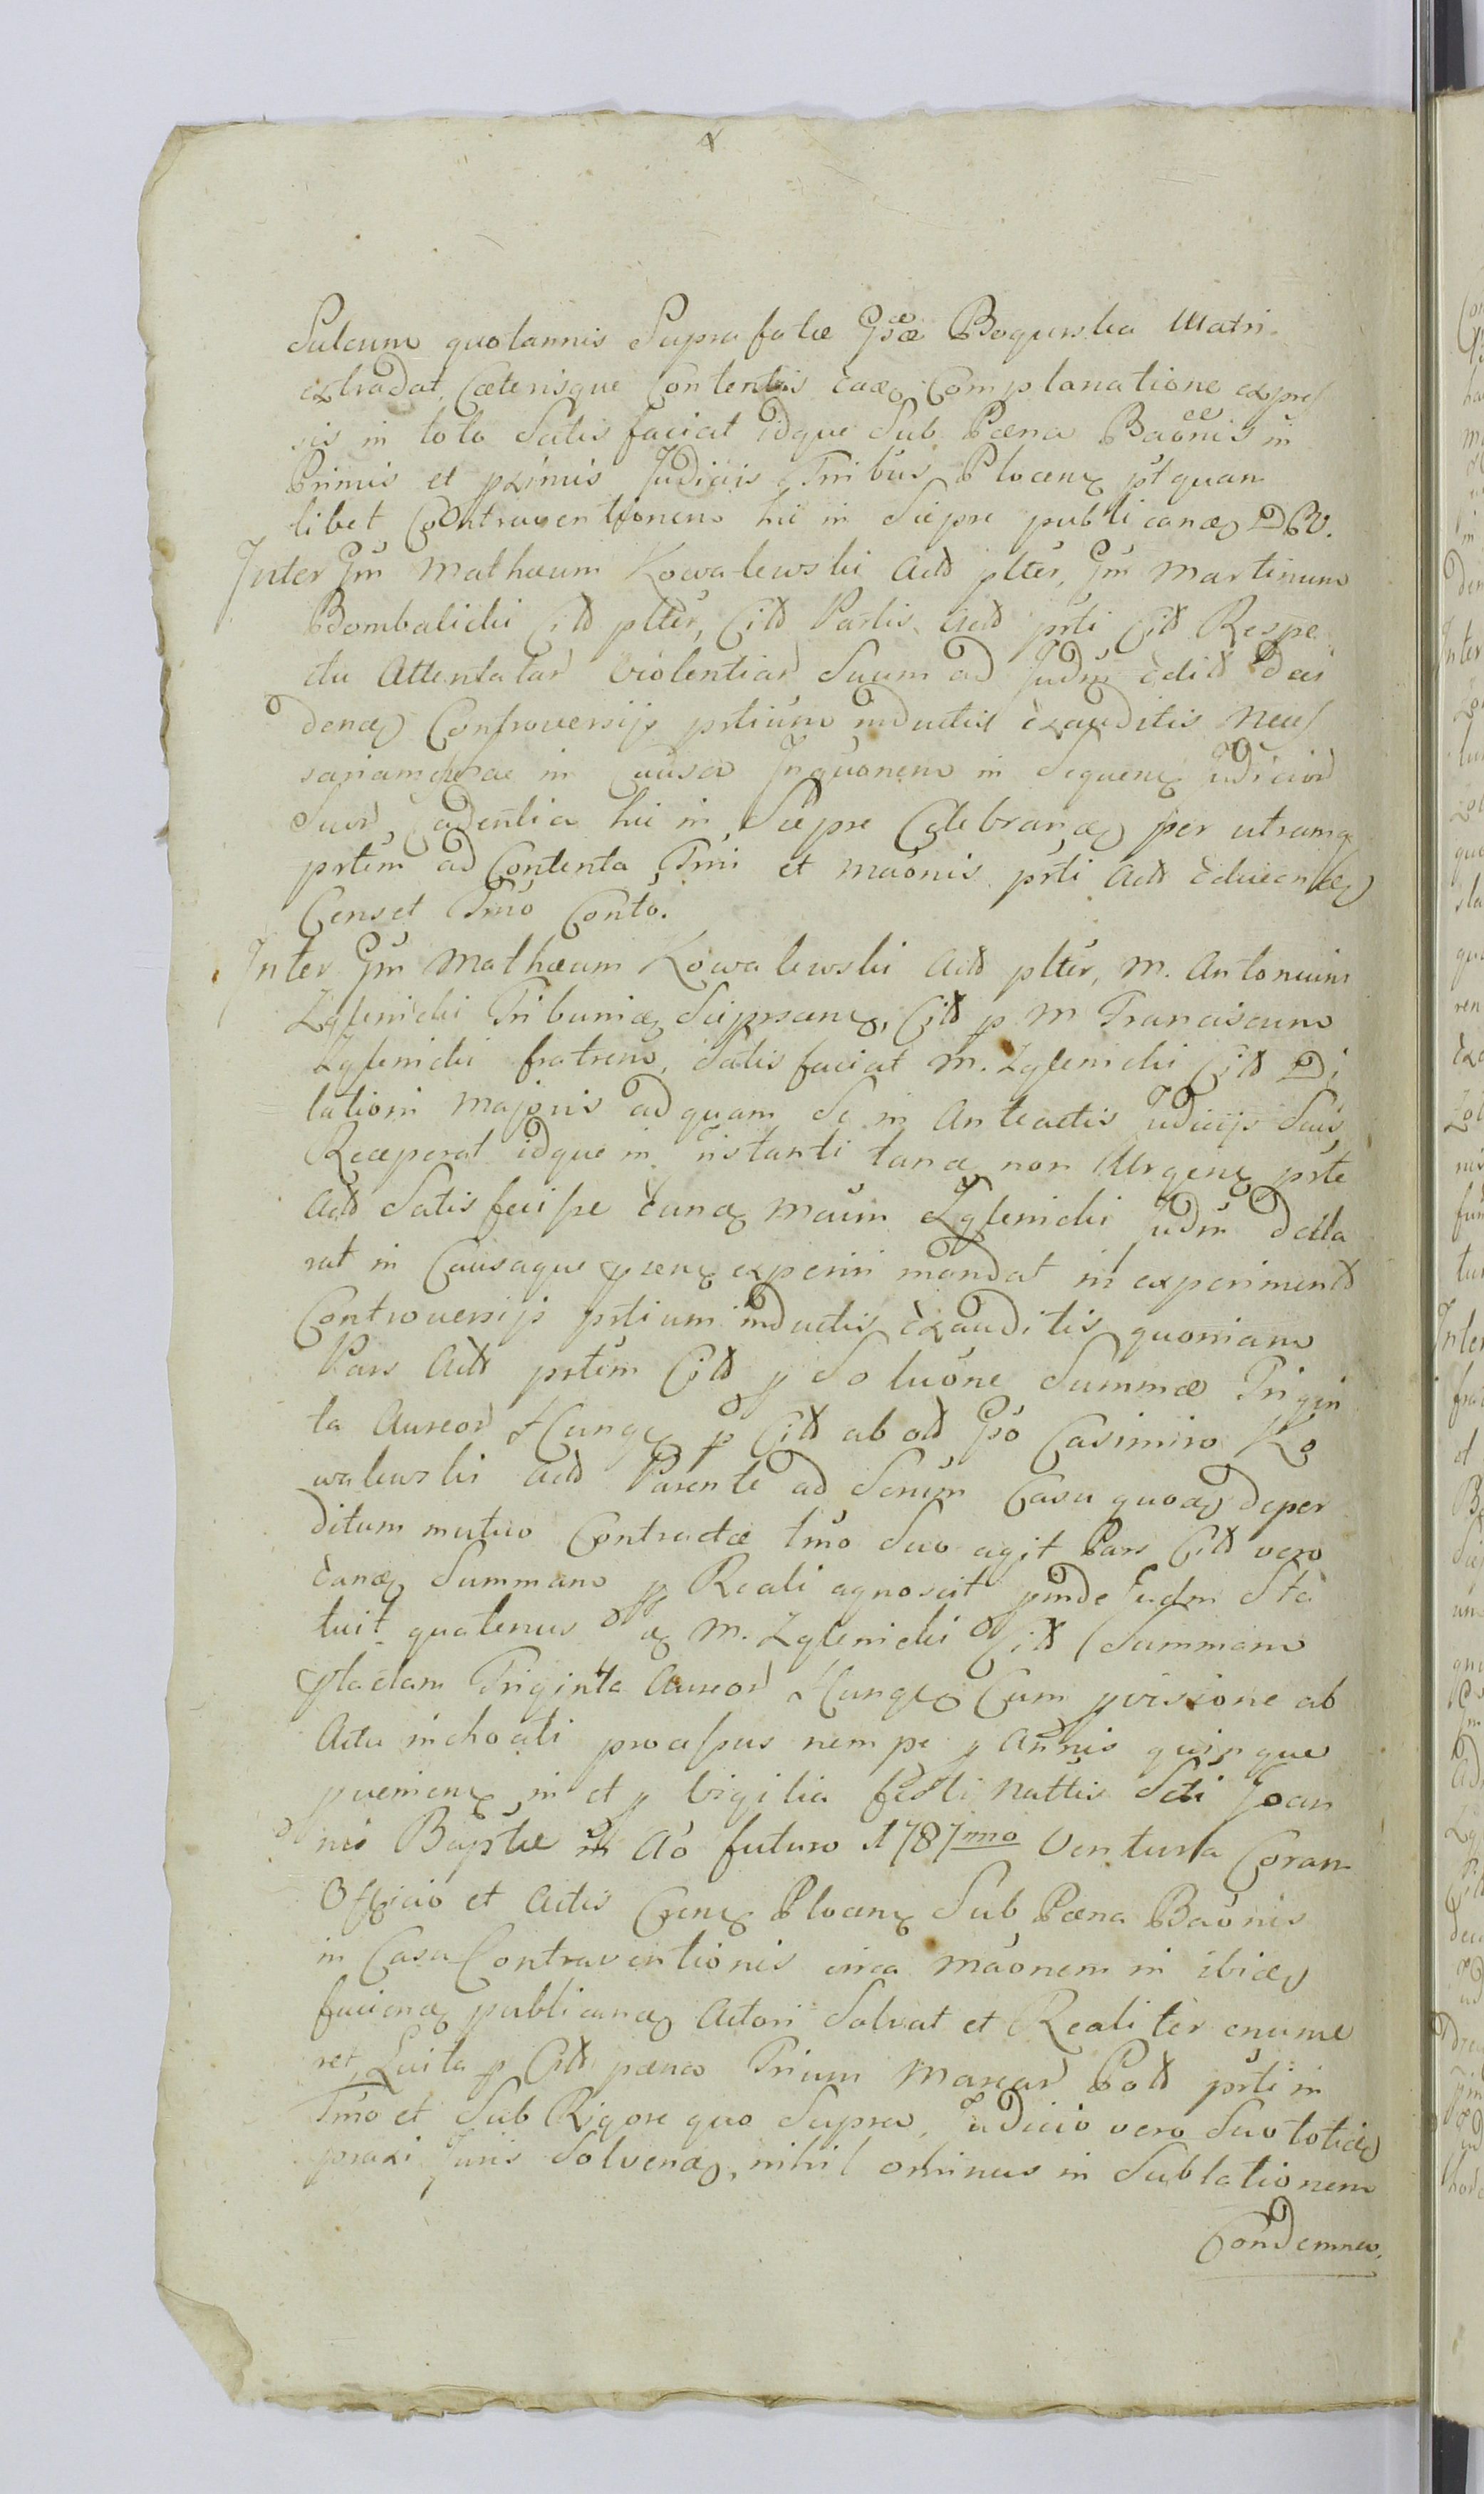 Sulcum quotannis Supra fatæ Gsæ Bogurska Matri
extradat, Cæterisque Contentis Complanatione expres
sis in toto Satis faciat idque Sub Pæna Baönis in
Primis et pximis Judiciis Tribus Plocen ptquam
libet Contraventionem hic in Siepre publicand
Inter Gm Mathæum Kowalewski Actt plter, Gm Martinum
Bombalicki Citt plter, Citt Partis Actt prti Citt Respe
ctu Attentatar Violentiar Suum ad Judm
Controversijs prtium inductis Exauditis Neces
sariamque in Causa Inquonem in Sequen Judicior
Suor Cadentia hic in Siepre Celebrand per utramq
prtem ad Contenta Tmi et maönis prti Actt
Censet Tmo Conto.
Inter Gm Mathæum Kowalewski Actt plter, M. Antonium
Zglenicki Tribunid Sieprcen, Citt p M Franciscum
Zglenicki fratrem, Satis faciat M. Zglenicki Citt Di
lationi Majoris ad quam Se in Anteactis Judicijs Suis
Receperat idque in instanti tand non Urgen prte
Actt Satis fecisse Eund Maum Zglenicki Judm decla
rat in Causaque pren experiri mandat in experimentt
Controversijs prtium inductis Exauditis quoniam
Pars Actt prtem Citt p Soluöne Summæ Trigin
ta Aureor Hung p Citt ab ott Gso Casimiro Ko
walewski Actt Parente ad Scrum Casu quod deper
ditum mutuo Contractæ tmo Suo agit Pars Citt vero
Eand Summam p Reali agnoscit pinde Judm Sta
tuit quatenus M. Zglenicki Citt Summam
pfactam Triginta Aureor Hung Cum pvisione ab
Actu inchoati processus nempe p Annis quinque
pvenien in et p Vigilia festi Nattis Scti Joan
nis Baptæ in Ao futuro 1787mo Ventura Coram
Officio et Actis Gren Plocen Sub Pæna Baönis
in Casu Contraventionis circa maönem in ibid
faciend publicand Actori Solvat et Realiter enume
ret, Luita p Citt pæna Trium Marcar Pott prti in
Tmo et Sub Rigore quo Supra, Judicio vero Suo totid
praxi Juris Solvend, nihil ominus in Sublationem
Condemna.